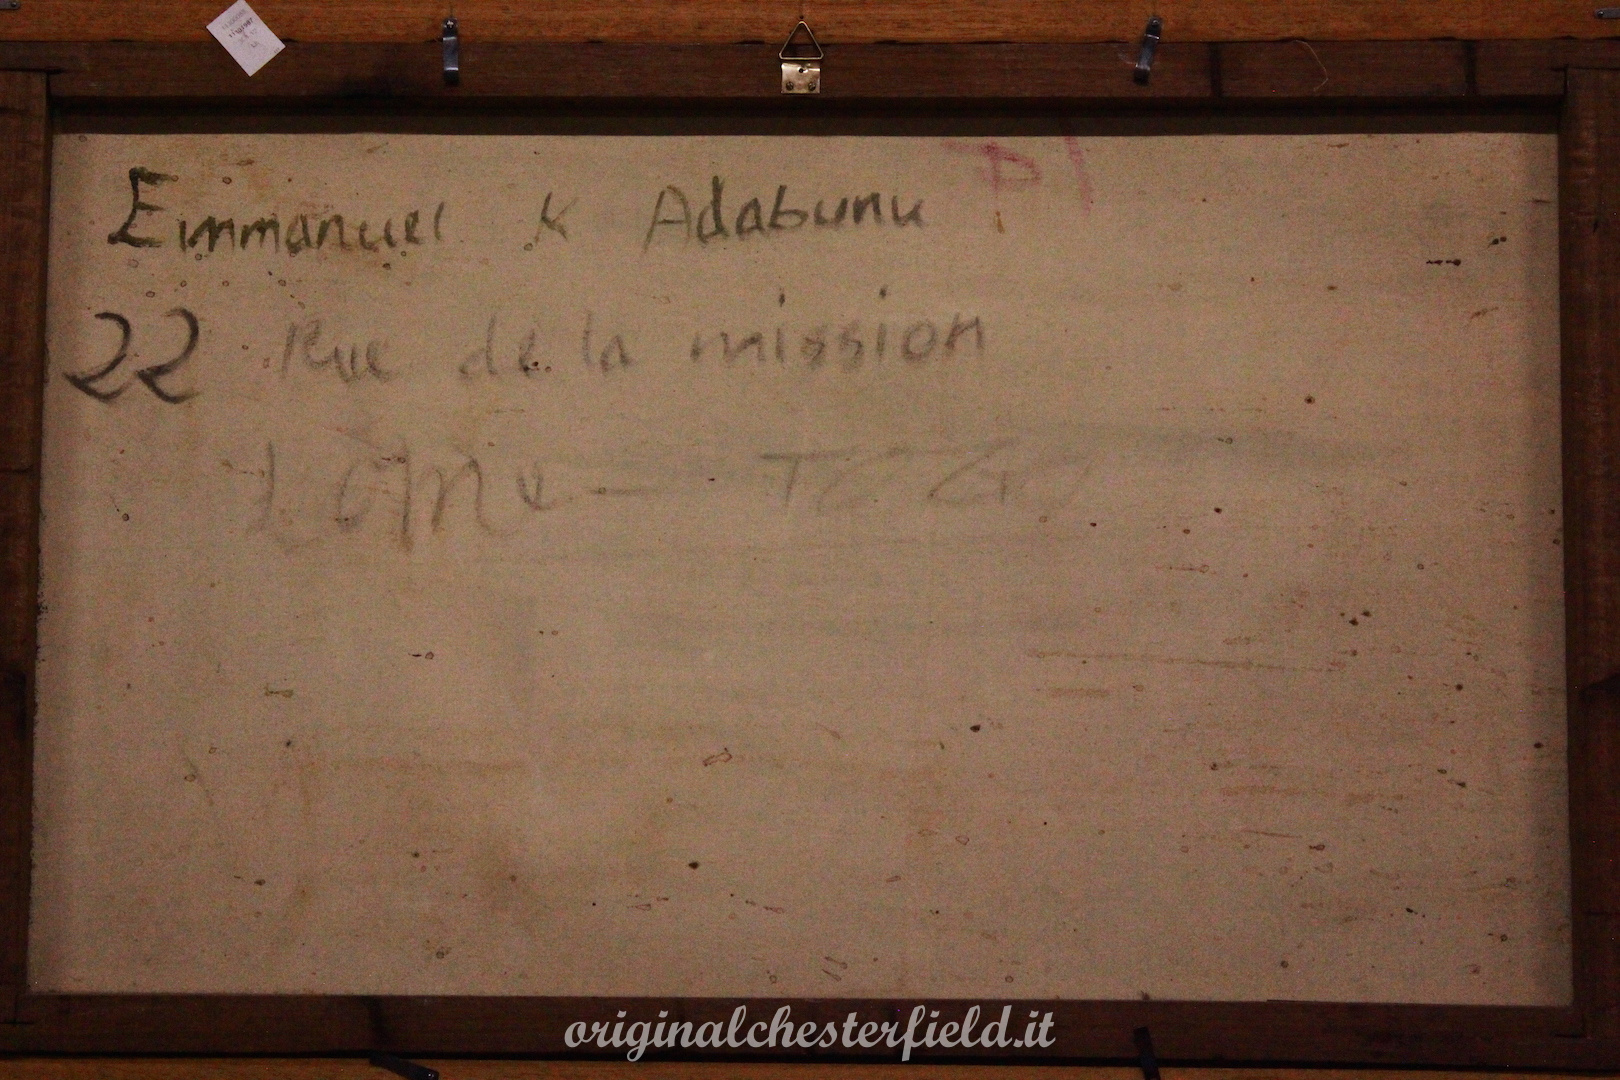 Emmanuel K Adabunu
22 Rue de la mission
Lome — TOGO
originalchesterfield.it